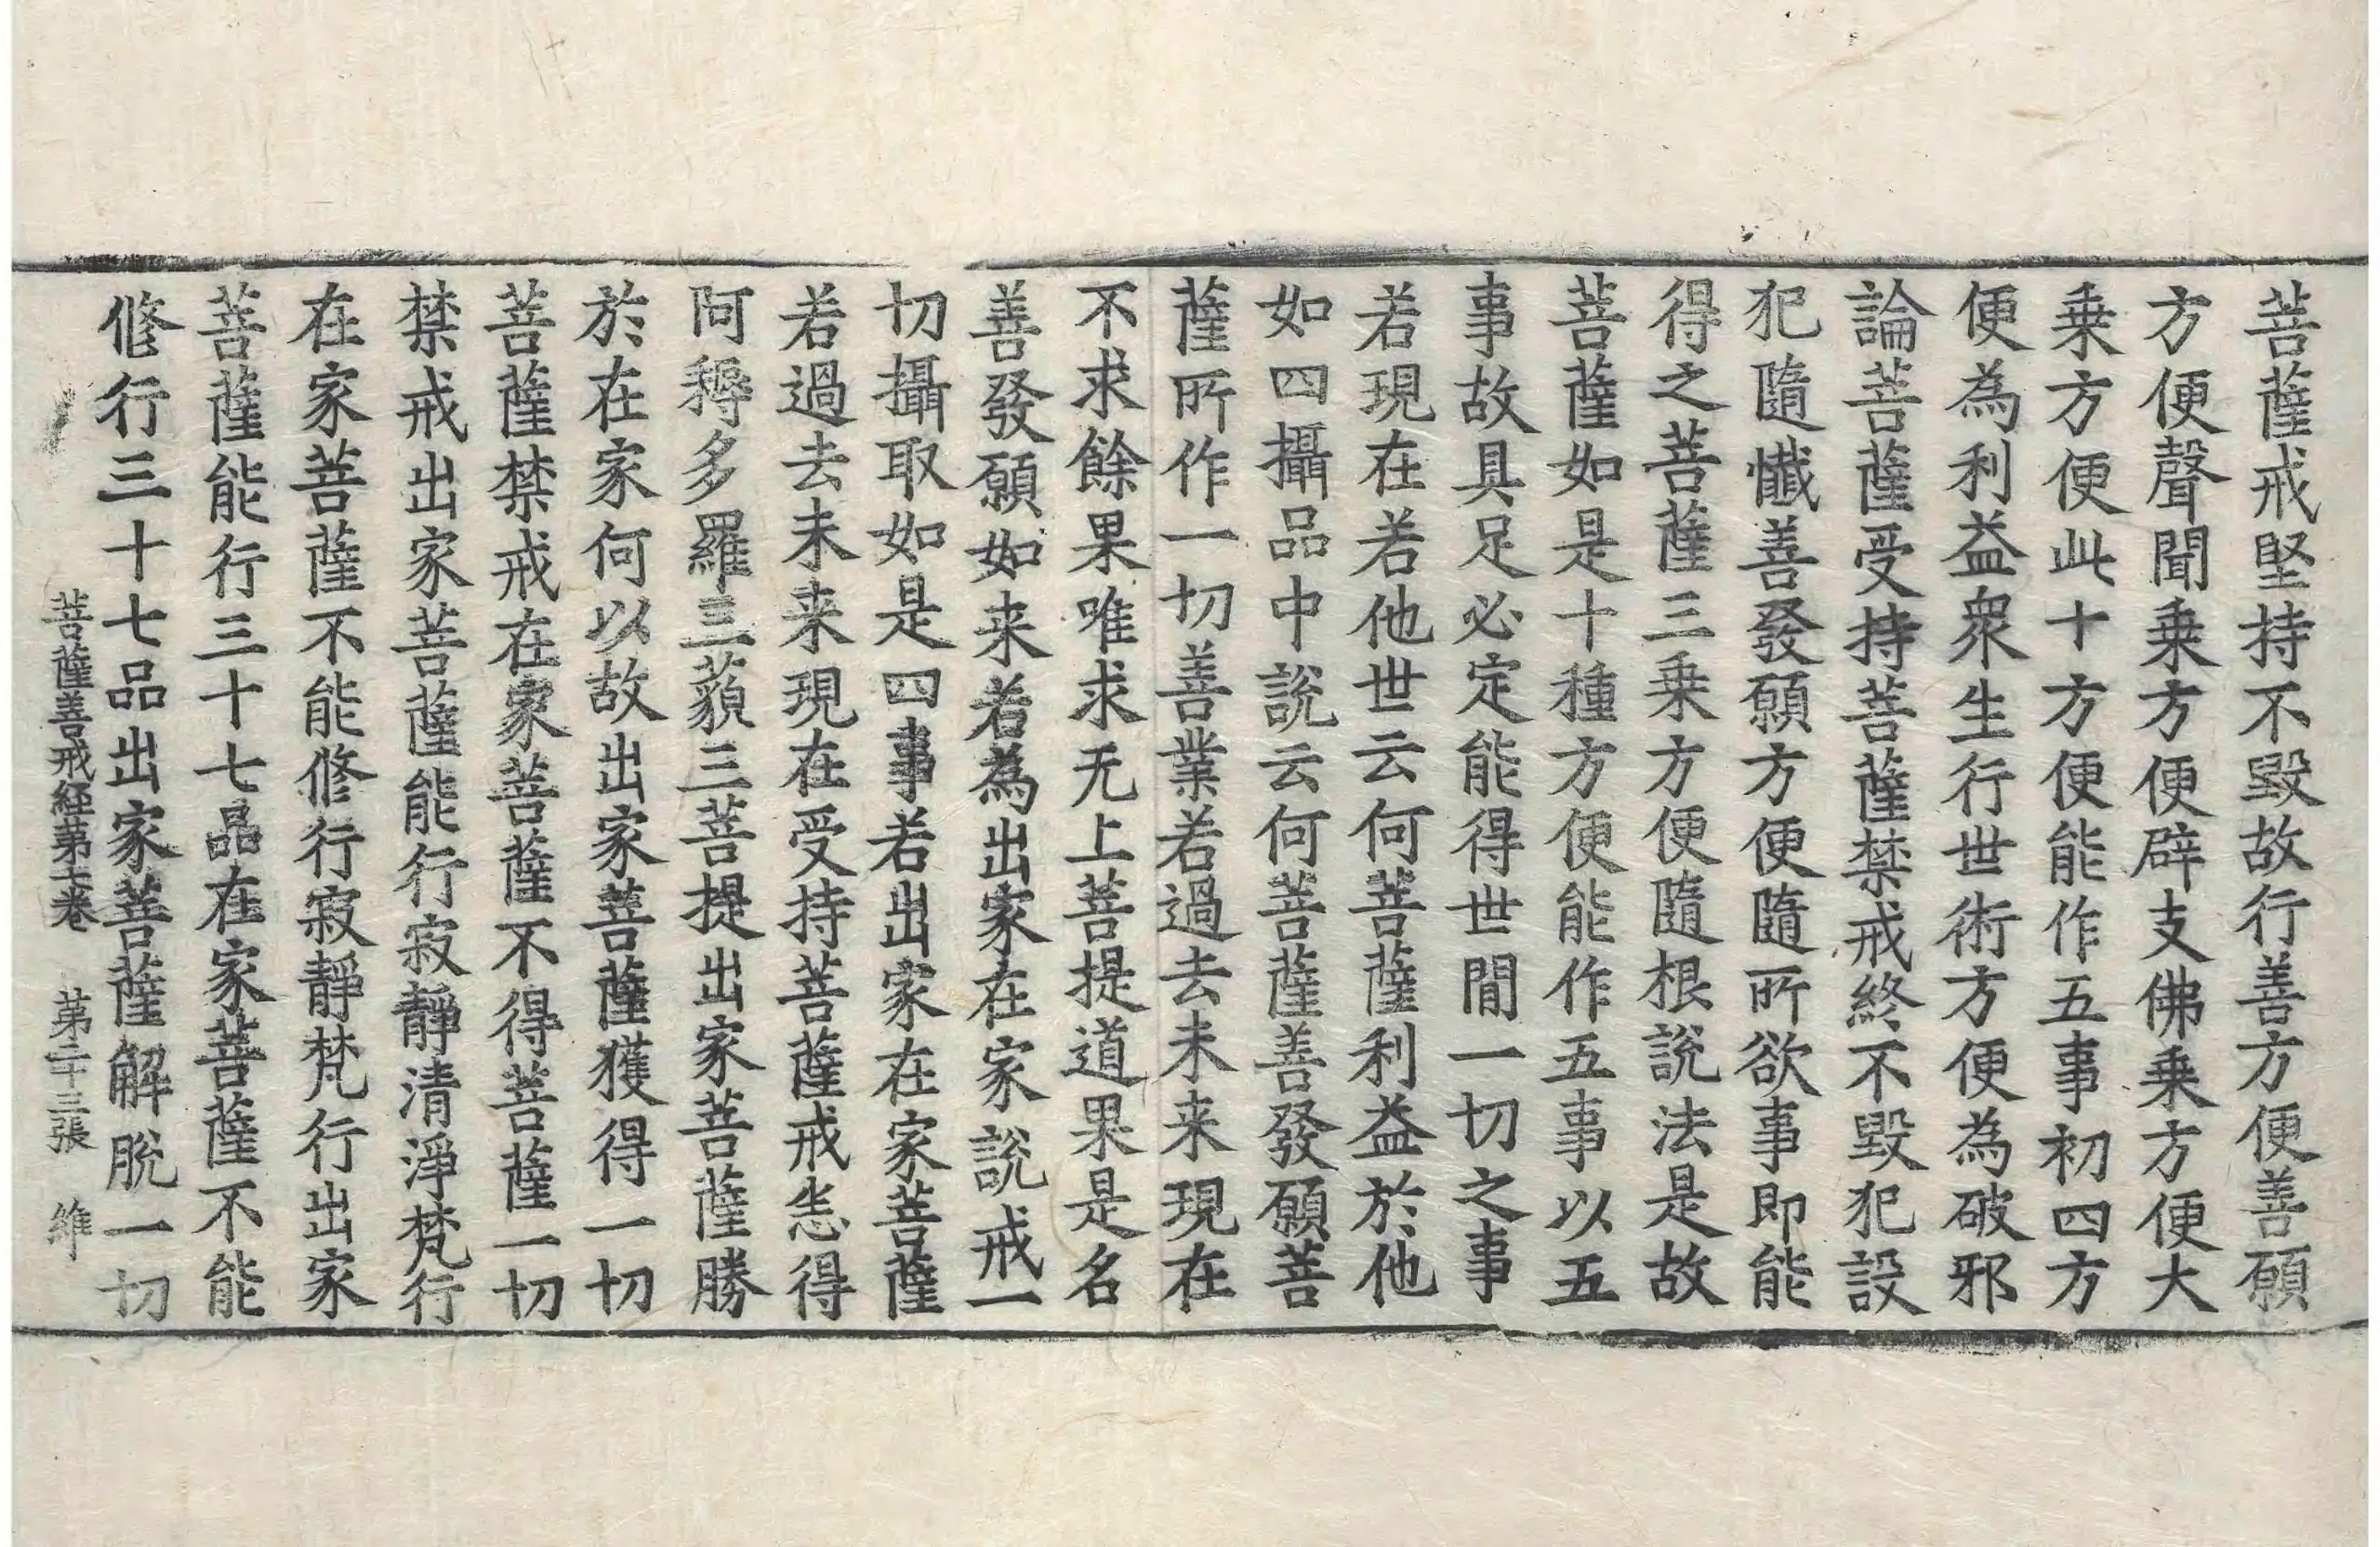 菩薩戒堅持不毀故行善方便善願
方便聲聞乗方便辟支佛乗方便大
乗方便此十方便能作五事初四方
便為利益衆生行世術方便為破邪
論菩薩受持菩薩禁戒終不毀犯設
犯隨懺善發願方便隨所欲事即能
得之菩薩三乗方便隨根說法是故
菩薩如是十種方便能作五事以五
事故具足必定能得世間一切之事
若現在若他世云何菩薩利益於他
如四攝品中說云何菩薩善發願菩
薩所作一切善業若過去未来現在
不求餘果唯求无上菩提道果是名
善發願如来若為出家在家說戒一
切攝取如是四事若出家在家菩薩
若過去未来現在受持菩薩戒恙得
阿耨多羅三藐三菩提出家菩薩勝
於在家何以故出家菩薩獲得一切
菩薩禁戒在家菩薩不得菩薩一切
禁戒出家菩薩能行寂靜清淨梵行
在家菩薩不能修行寂靜梵行出家
菩薩能行三十七品在家菩薩不能
修行三十七品出家菩薩解脫一切
菩薩善戒經第七卷 第二十三張 維